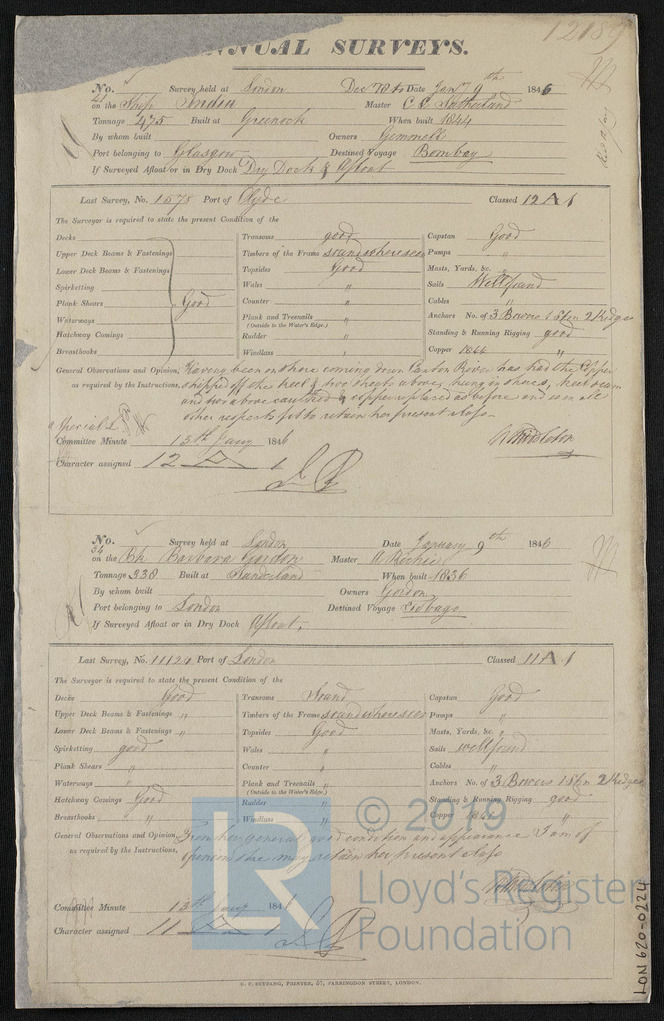 12189
ANNUAL SURVEYS.
No. 41 Survey held at London Dec 78 to Date Jany 9th 1846
on the Ship Master C C Sutherland
Tonnage 475 Built at Greenock When built 1844
By whom built Owners Gemmell
Port belonging to Glasgow Destined Voyage Bombay
If Surveyed Afloat or in Dry Dock Dry Dock & Afloat
Last Survey, No. 1578 Port of Clyde Classed 12 A 1
The Surveyor is required to state the present Condition of the
Decks Transoms good Capstan Good
Upper Deck Beams & Fastenings Timbers of the Frame sound where seen Pumps "
Lower Deck Beams & Fastenings Topsides Good Masts, Yards, &c. "
Spirketting Wales " Sails Well found
Plank Shears Good Counter " Cables "
Waterways Plank and Treenails " Anchors No. of 3 Bowers 1 Stm 2 Kedges
(Outside to the Water's Edge.)
Hatchway Comings Rudder " Standing & Running Rigging good
Breasthooks Windlass " Copper 1844 "
General Observations and Opinion, Having been on shore coming down Canton River has had the Copper
as required by the Instructions, stripped off the keel & two sheets above, hung in shores, keel seam
and two above caulked & copper replaced as before and is in all
other respects fit to retain her present Class.
Special
Committee Minute 13th Jany 1846
Character assigned 12 A 1
No. 34 Survey held at London Date January 9th 1846
on the Bk Barbara Gordon Master A Ritchie
Tonnage 338 Built at Sunderland When built 1836
By whom built Owners Gordon
Port belonging to London Destined Voyage Tobago
If Surveyed Afloat or in Dry Dock Afloat.
Last Survey, No. 11124 Port of London Classed 11 A 1
The Surveyor is required to state the present Condition of the
Decks Good Transoms Sound Capstan Good
Upper Deck Beams & Fastenings " Timbers of the Frame sound where seen Pumps "
Lower Deck Beams & Fastenings " Topsides Good Masts, Yards, &c. "
Spirketting good Wales " Sails well found
Plank Shears " Counter " Cables "
Waterways " Plank and Treenails " Anchors No. of 3 Bowers 1 Stm 2 Kedges
(Outside to the Water's Edge.)
Hatchway Comings Good Rudder " Standing & Running Rigging good
Breasthooks " Windlass " Copper "
General Observations and Opinion, From her general good condition and appearance I am of
as required by the Instructions, opinion she may retain her present Class
Committee Minute 13th Jany 1846
Character assigned 11 A 1
LR © 2019
Lloyd's Register
Foundation
LON 620-0224